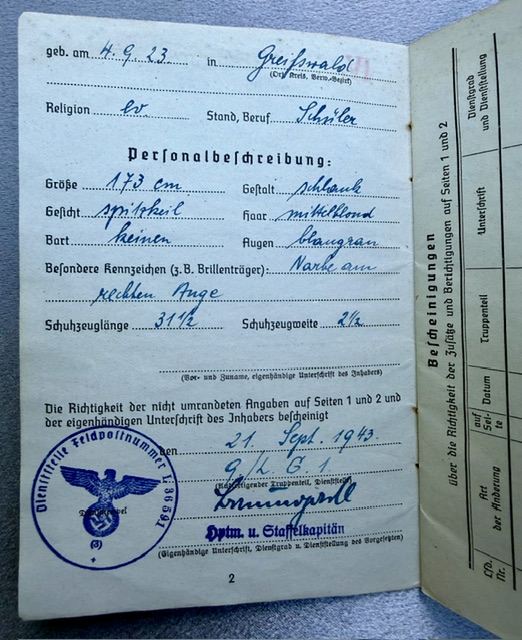 geb. am 4.9.23. in Greifswald
(Ort, Kreis, Verw.-Bezirk)
Religion ev. Stand, Beruf Schüler
Personalbeschreibung:
Größe 173 cm Gestalt schlank
Gesicht spitzkeil Haar mittelblond
Bart keinen Augen blaugrau
Besondere Kennzeichen (z.B. Brillenträger): Narbe am
rechten Auge
Schuhzeuglänge 31½ Schuhzeugweite 2½
(Vor- und Zuname, eigenhändige Unterschrift des Inhabers)
Die Richtigkeit der nicht umrandeten Angaben auf Seiten 1 und 2 und
der eigenhändigen Unterschrift des Inhabers bescheinigt
den 21. Sept. 1943.
9/L. G. 1.
(Ausfertigender Truppenteil, Dienststelle)
Dienststelle Feldpostnummer L 36591
Dienststempel
(3)
Hptm. u. Staffelkapitän
(Eigenhändige Unterschrift, Dienstgrad u. Dienststellung des Vorgesetzten)
2
Bescheinigungen
über die Richtigkeit der Zusätze und Berichtigungen auf Seiten 1 und 2
Lfd. Nr.
Art der Änderung
auf Sei-te
Datum
Truppenteil
Unterschrift
Dienstgrad und Dienststellung